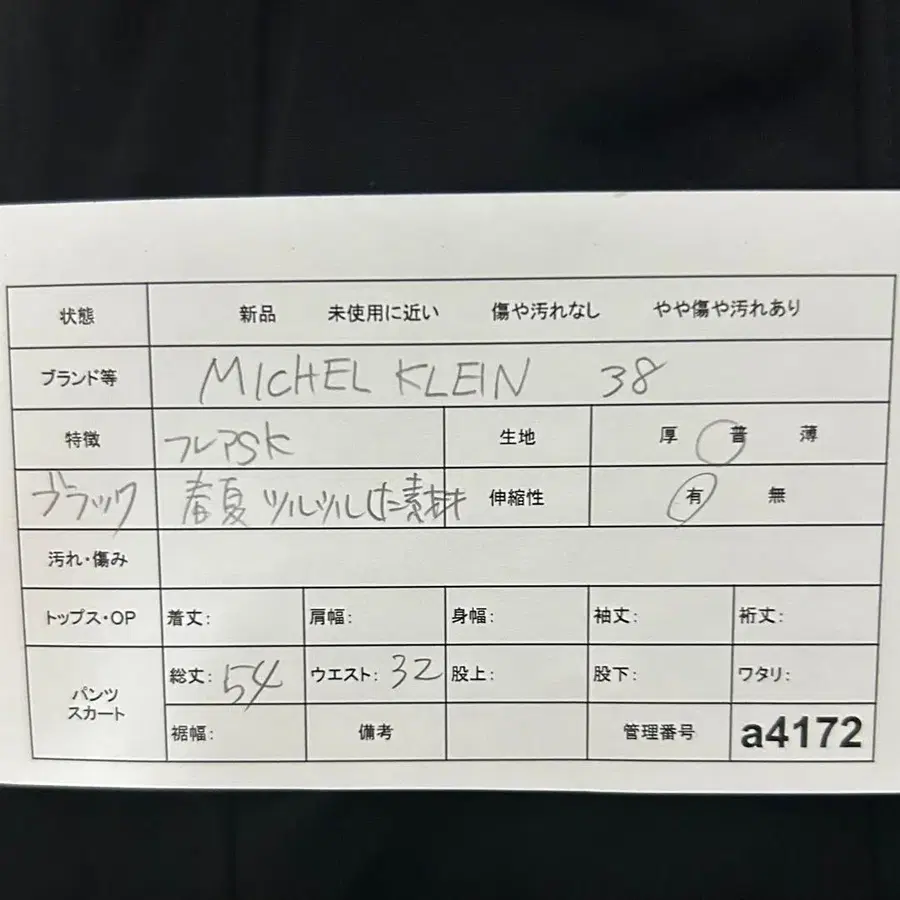 状態 新品 未使用に近い 傷や汚れなし やや傷や汚れあり
ブランド等 MICHEL KLEIN 38
特徴 フレアSK 生地 厚 普 薄
ブラック 春夏 ツルツルした素材 伸縮性 有 無
汚れ・傷み
トップス・OP 着丈: 肩幅: 身幅: 袖丈: 裄丈:
パンツ スカート 総丈: 54 ウエスト: 32 股上: 股下: ワタリ:
裾幅: 備考 管理番号 a4172